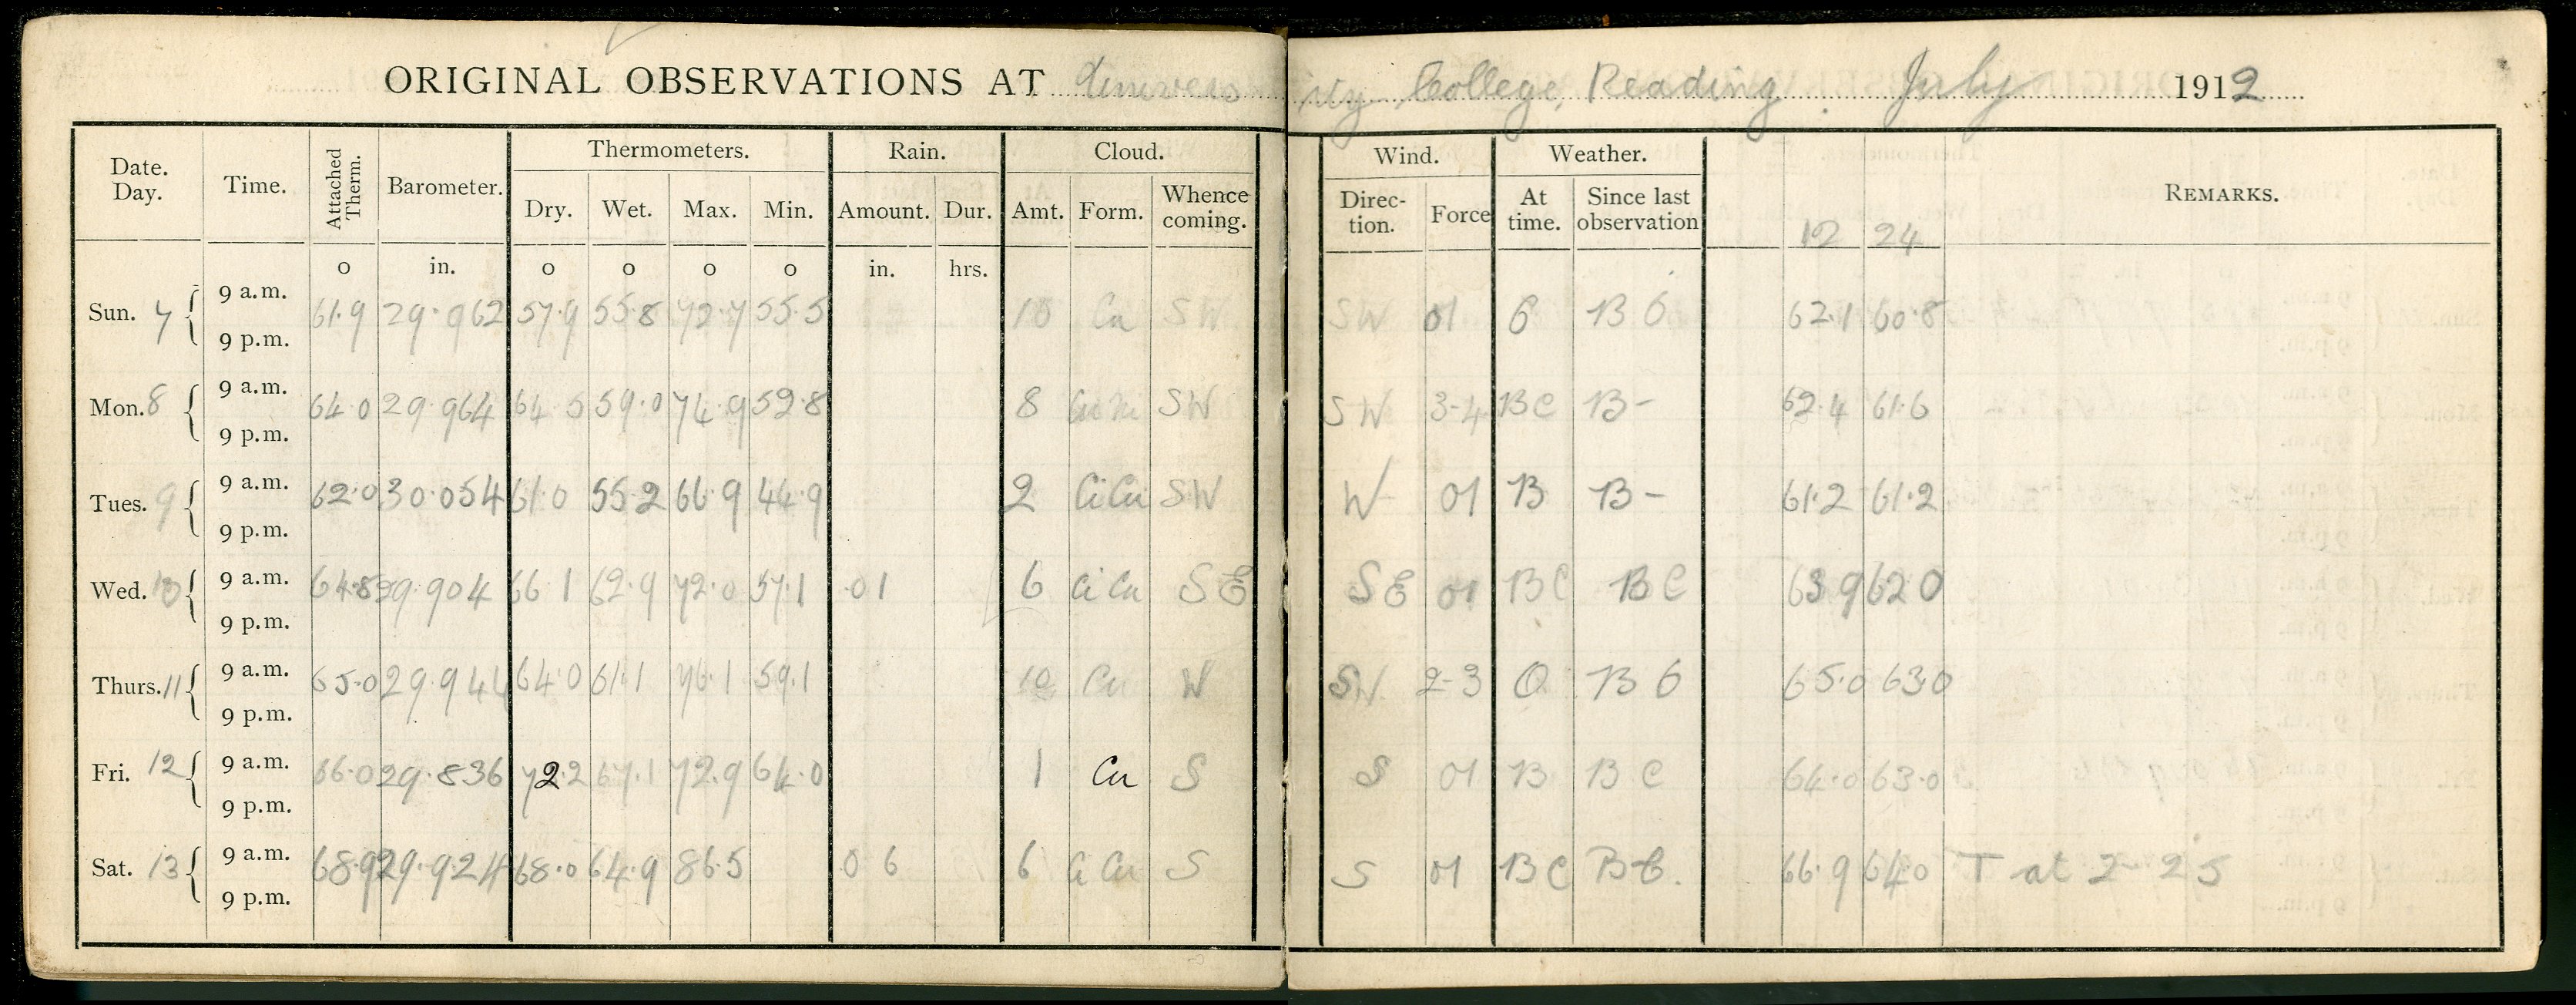 ORIGINAL OBSERVATIONS AT University College, Reading July 1912
Date. Day. Time. Attached Therm. Barometer. Thermometers. Rain. Cloud. Wind. Weather. REMARKS.
Dry. Wet. Max. Min. Amount. Dur. Amt. Form. Whence coming. Direc- tion. Force At time. Since last observation 12 24
o in. o o o o in. hrs.
Sun. 7 { 9 a.m. 61.9 29.962 57.9 55.8 72.7 55.5 10 Cu SW SW 01 6 B 6 62.1 60.8
9 p.m.
Mon. 8 { 9 a.m. 64.0 29.964 64.5 59.0 74.9 52.8 8 SW SW 3-4 BC B- 62.4 61.6
9 p.m.
Tues. 9 { 9 a.m. 62.0 30.054 61.0 55.2 66.9 44.9 2 CiCu SW W 01 B B- 61.2 61.2
9 p.m.
Wed. 10 { 9 a.m. 64.8 29.904 66.1 62.9 72.0 57.1 .01 6 CiCu SE SE 01 BC BC 63.9 62.0
9 p.m.
Thurs. 11 { 9 a.m. 65.0 29.944 64.0 61.1 76.1 59.1 10 Cu W SW 2-3 O B 6 65.0 63.0
9 p.m.
Fri. 12 { 9 a.m. 66.0 29.836 72.2 67.1 72.9 64.0 1 Cu S S 01 B BC 64.0 63.0
9 p.m.
Sat. 13 { 9 a.m. 68.9 29.924 68.0 64.9 86.5 06 6 CiCu S S 01 BC 66.9 64.0 T at 2-25
9 p.m.